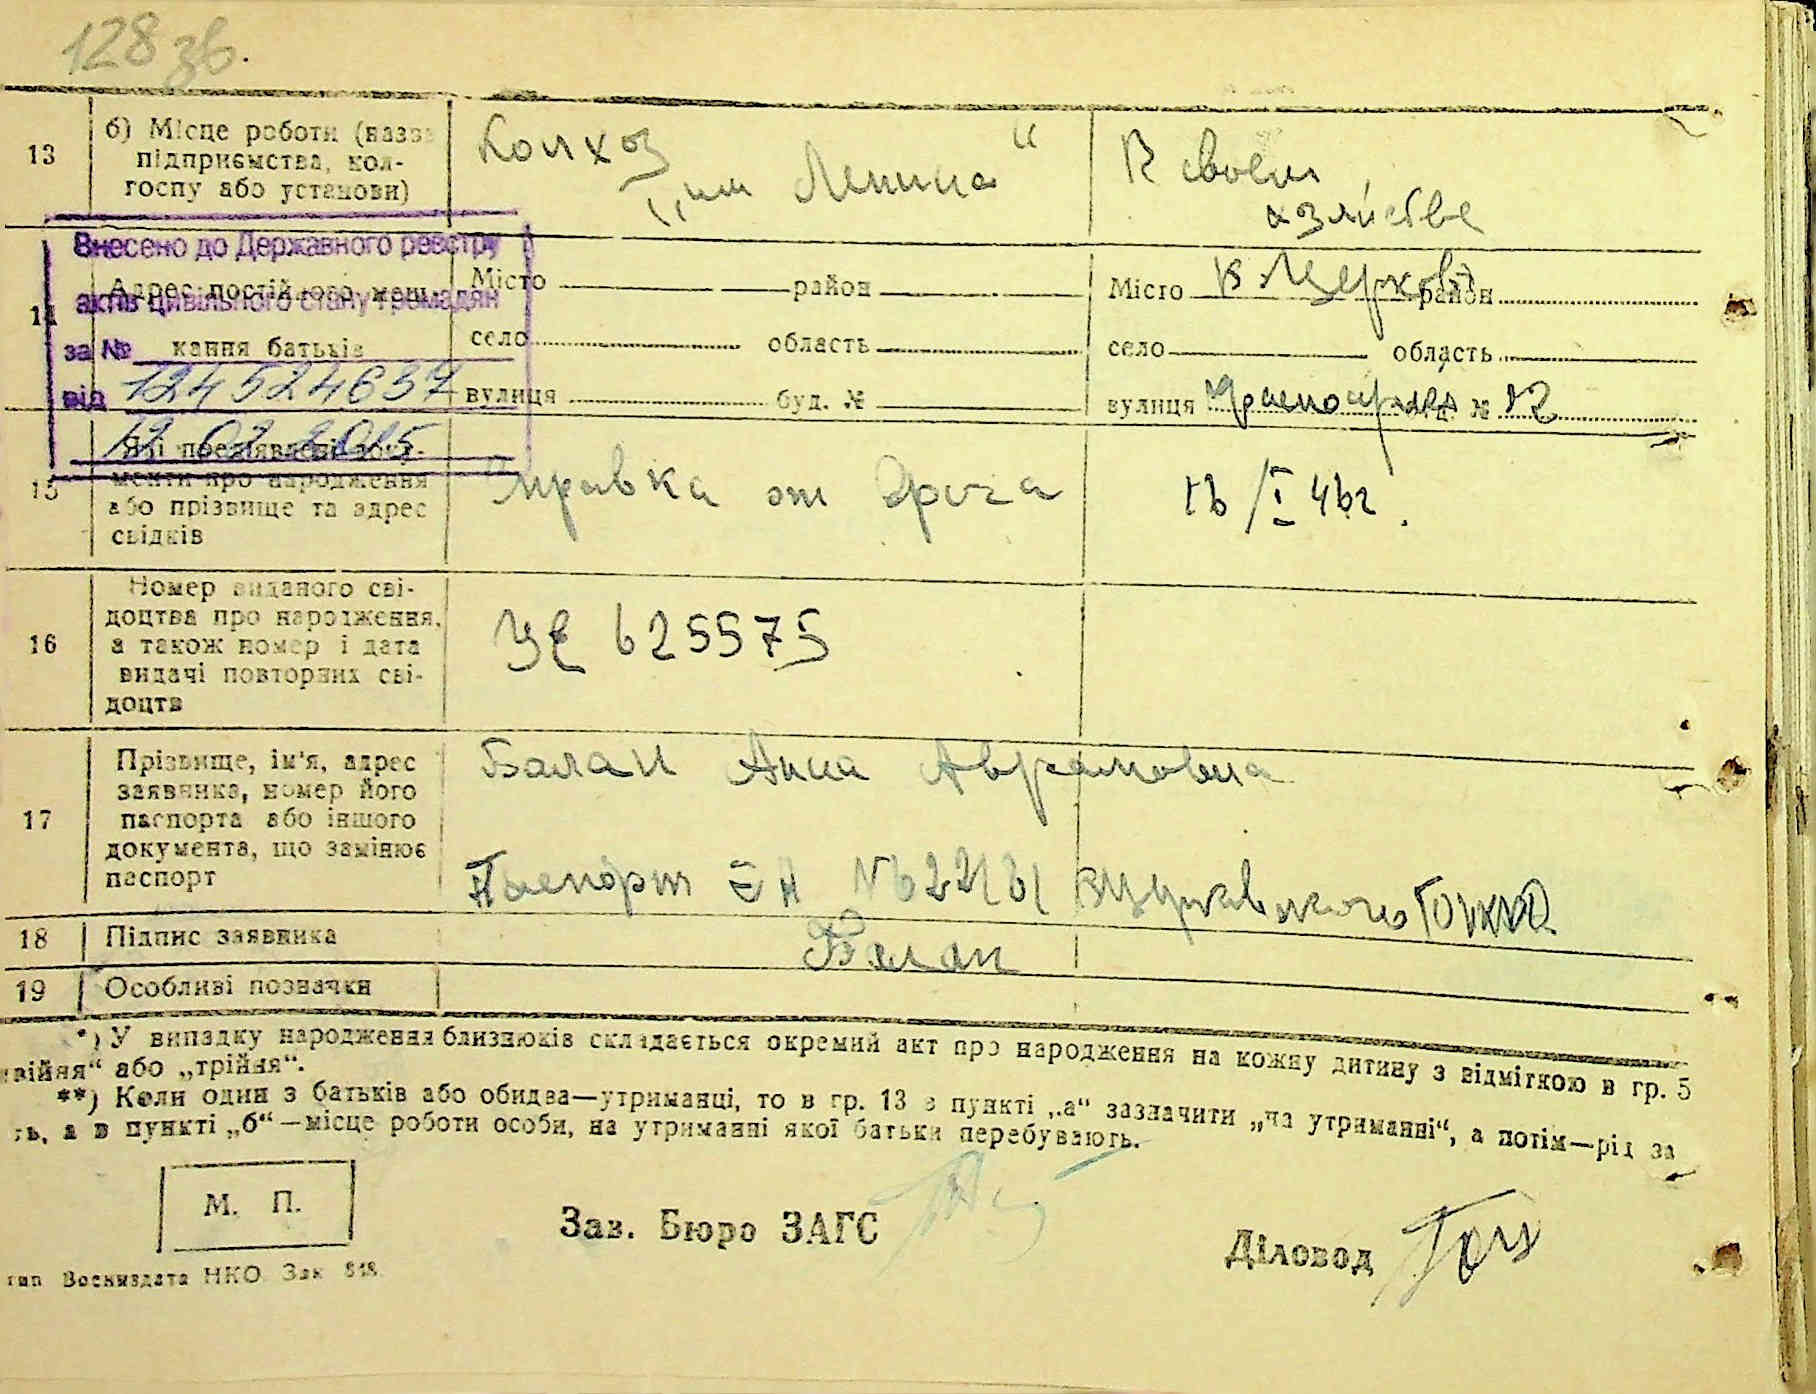 128 зв.
13
б) Місце роботи (назва
підприємства, кол-
госпу або установи)
Колхоз
„им Ленина“
В своем
хозяйстве
Внесено до Державного реєстру
актів цивільного стану громадян
за №
від 124524637
12 02 2015
14
Адрес постійного меш-
кання батьків
Місто район
село область
вулиця буд. №
Місто Б Церковь район
село область
вулиця № 12
15
Які пред'явлені доку-
менти про народження
або прізвище та адрес
свідків
Справка от Врача
16/I 46г.
16
Номер виданого сві-
доцтва про народження,
а також номер і дата
видачі повторних сві-
доцтв
УЕ 625575
17
Прізвище, ім'я, адрес
заявника, номер його
паспорта або іншого
документа, що замінює
паспорт
Балан Анна Аврамовна
Паспорт
18
Підпис заявника
Балан
19
Особливі позначки
*) У випадку народження близнюків складається окремий акт про народження на кожну дитину з відміткою в гр. 5
війня“ або „трійня“.
**) Коли один з батьків або обидва—утриманці, то в гр. 13 в пункті „а“ зазначити „на утриманні“, а потім—рід за
ть, а в пункті „б“—місце роботи особи, на утриманні якої батьки перебувають.
М. П.
Зав. Бюро ЗАГС
Діловод
тип Воениздата НКО Зак 518